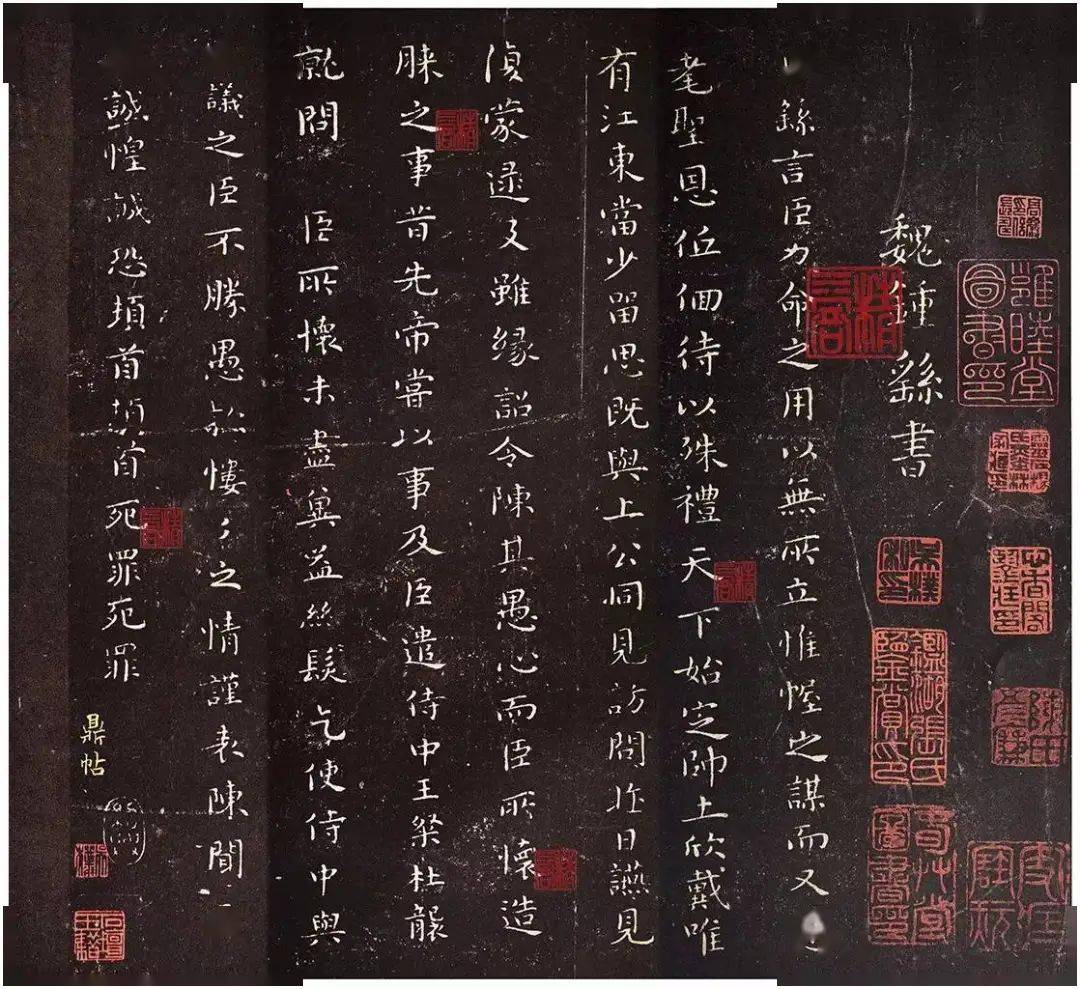 魏鍾繇書
繇言臣力命之用以無所立惟幄之謀而又
耄聖恩低佪待以殊禮天下始定帥土欣戴唯
有江東當少留思既與上公同見訪問昨日讌見
復蒙逮及雖緣詔令陳其愚心而臣所懷造
膝之事昔先帝嘗以事及臣遣侍中王粲杜襲
就問 臣所懷未盡奚益絲髮乞使侍中與
議之臣不勝愚款慺々之情謹表陳聞
誠惶誠恐頓首頓首死罪死罪
鼎帖
雍睦堂圖書印
鑑湖張氏鑒賞印
春草堂圖書印